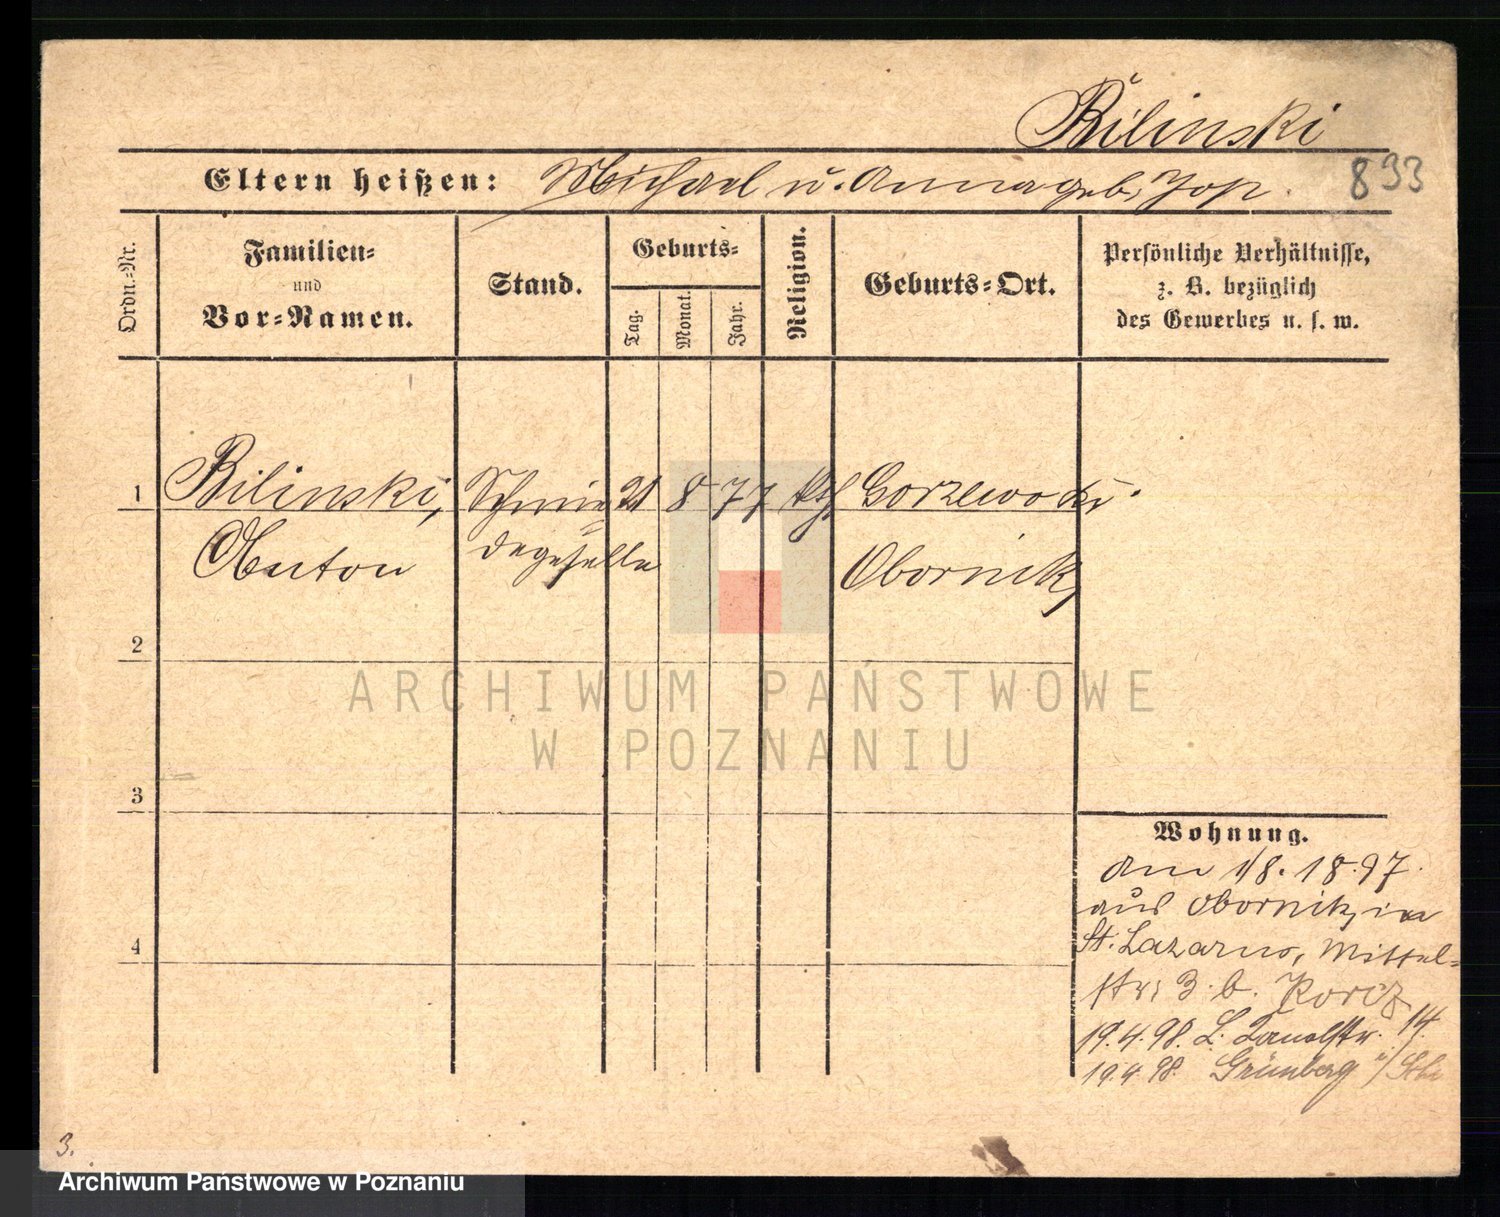 Bilinski
Eltern heißen: Michael u. Anna geb. Jop.
833
Ordn.-Nr.
Familien-
und
Vor-Namen.
Stand.
Geburts-
Tag.
Monat.
Jahr.
Religion.
Geburts-Ort.
Persönliche Verhältnisse,
z. B. bezüglich
des Gewerbes u. s. w.
1 Bilinski, Schmie= 21 8 77 kth Gorzewo Kr.
degeselle Obornik,
2
3
4
ARCHIWUM PAŃSTWOWE
W POZNANIU
Wohnung.
Am 1/8. 1897.
aus Obornik, in
St. Lazarus, Mittel=
str. 3. b. Koricz
19.4.98. L. 14.
19.4.98. Grünberg i/Schl
3.
Archiwum Państwowe w Poznaniu